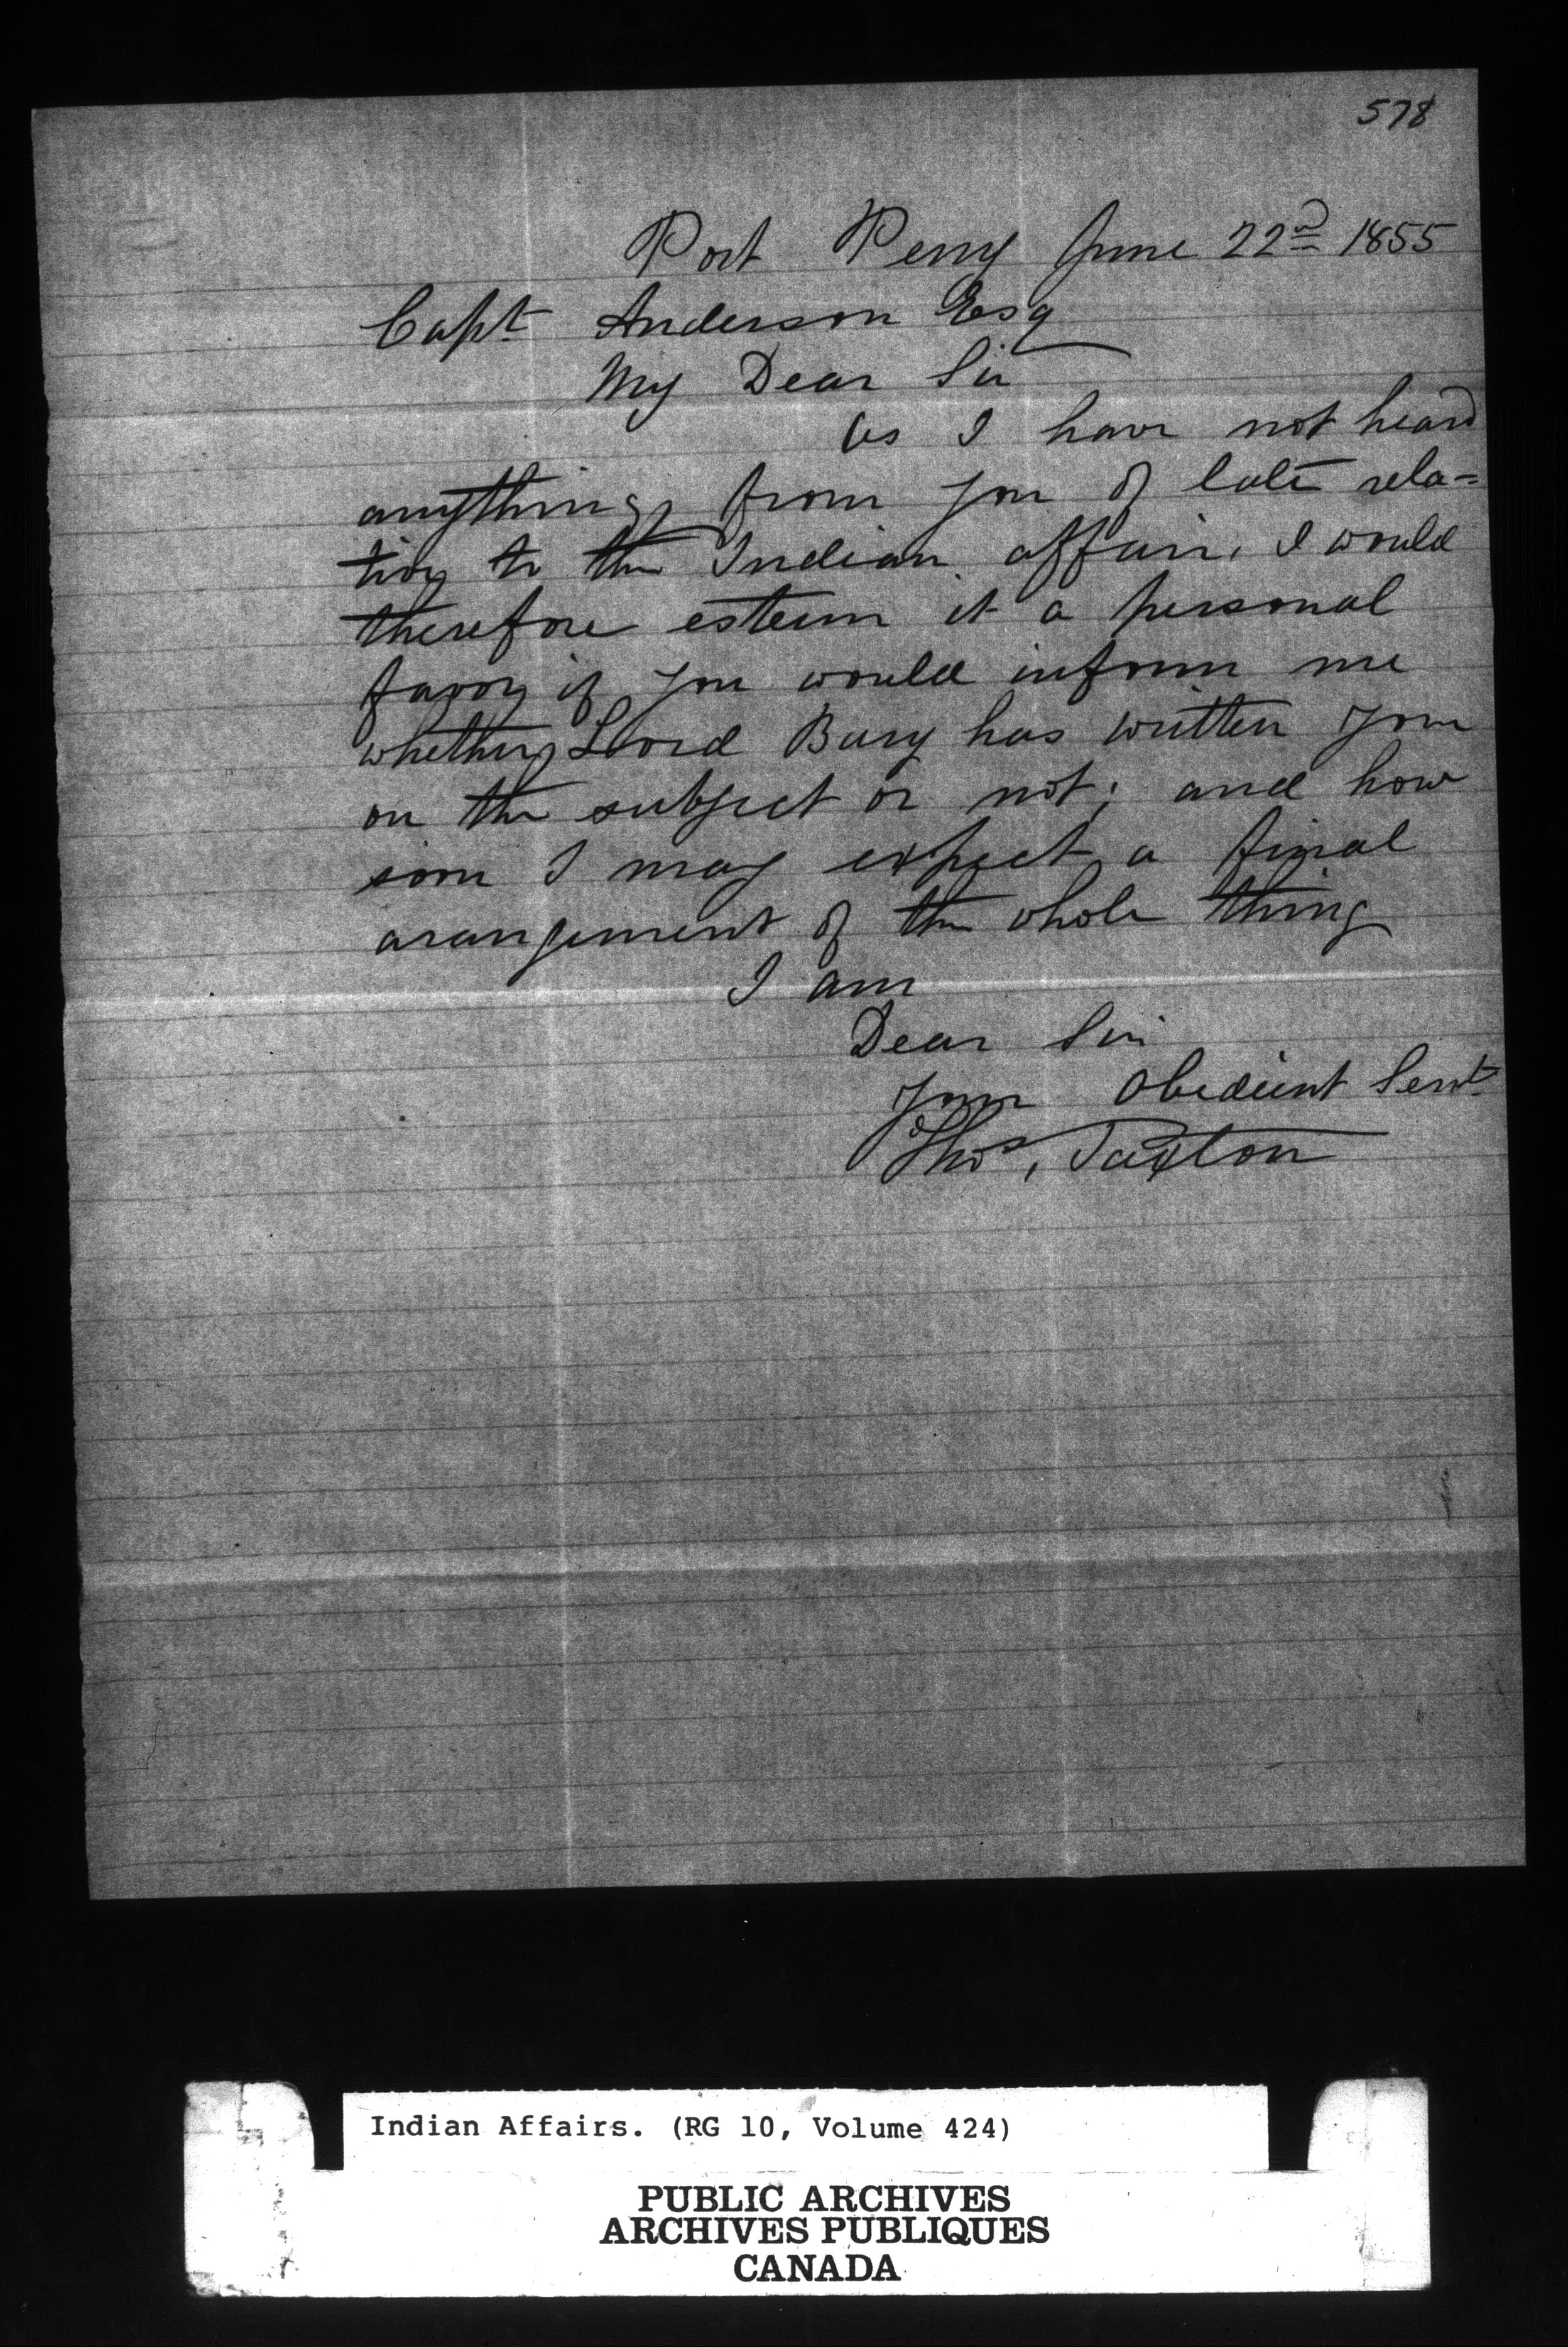 578
Port Perry June 22nd 1855
Capt Anderson Esq
My Dear Sir
as I have not heard
anything from you of late rela=
tive to the Indian affair, I would
therefore esteem it a personal
favor if you would inform me
whether Lord Bury has written you
on the subject or not; and how
soon I may expect a final
arangement of the whole thing
I am
Dear Sir
Your Obedient Servt
Thos, Paxton
Indian Affairs. (RG 10, Volume 424)
PUBLIC ARCHIVES
ARCHIVES PUBLIQUES
CANADA